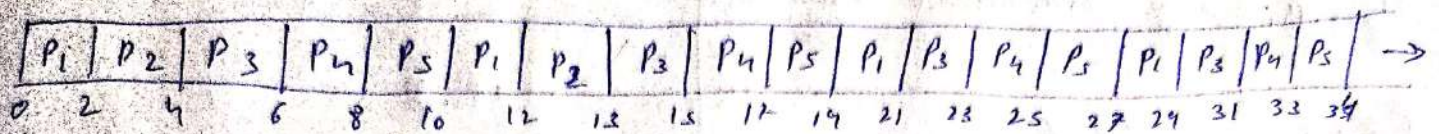 P1 P2 P3 P4 P5 P1 P2 P3 P4 P5 P1 P3 P4 P5 P1 P3 P4 P5 →
0 2 4 6 8 10 12 13 15 17 19 21 23 25 27 29 31 33 34